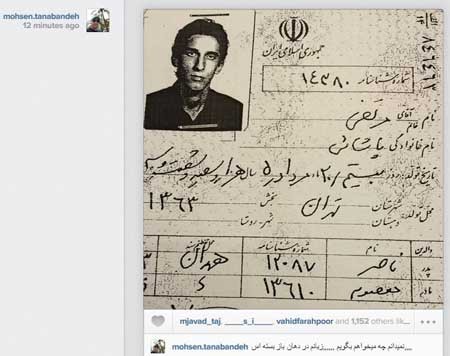 mohsen.tanabandeh
12 minutes ago
جمهوری اسلامی ایران
شماره شناسنامه ۱۴۳۸۰
نام آقای خانم مرتضی
نام خانوادگی پاشائی
تاریخ تولد: روز بیستم /۲۰ مرداد ماه هزار و سیصد و شصت و سه
۱۳۶۳
محل تولد: شهرستان تهران بخش
دهستان شهر-روستا
والدین نام شماره شناسنامه
پدر ناصر ۱۲۰۸۷ همدان
مادر معصومه ۱۳۶۱۰
mjavad_taj, ____s_i____, vahidfarahpoor and 1,152 others like...
mohsen.tanabandeh نمیدانم چه میخواهم بگویم ,,,,,زبانم در دهان باز بسته اس...